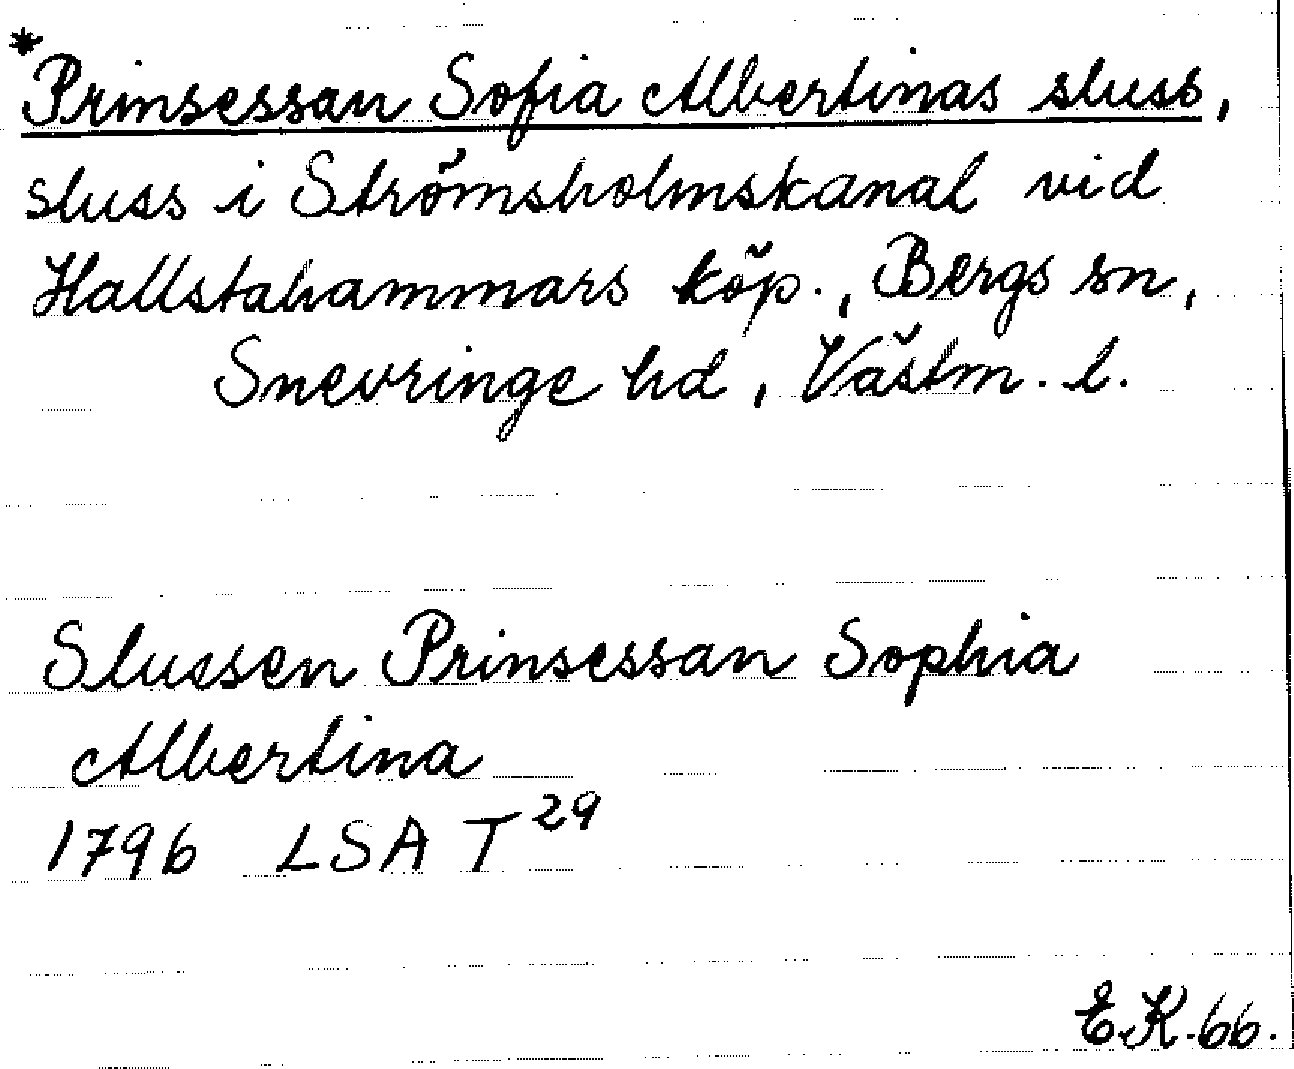 *Prinsessan Sofia Albertinas sluss,
sluss i Strömsholmskanal vid
Hallstahammars köp., Bergs sn,
Snevringe hd, Västm. l.
Slussen Prinsessan Sophia
Albertina
1796 LSA T29
E.K.66.